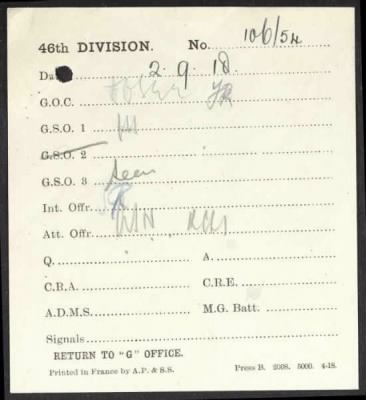 46th DIVISION. No. 106/54
Da 2.9.18
G.O.C.
G.S.O. 1
G.S.O. 2
G.S.O. 3 seen
Int. Offr.
Att. Offr.
Q. A.
C.R.A. C.R.E.
A.D.M.S. M.G. Batt.
Signals
RETURN TO "G" OFFICE.
Printed in France by A.P. & S.S. Press B. 2038. 5000. 4-18.